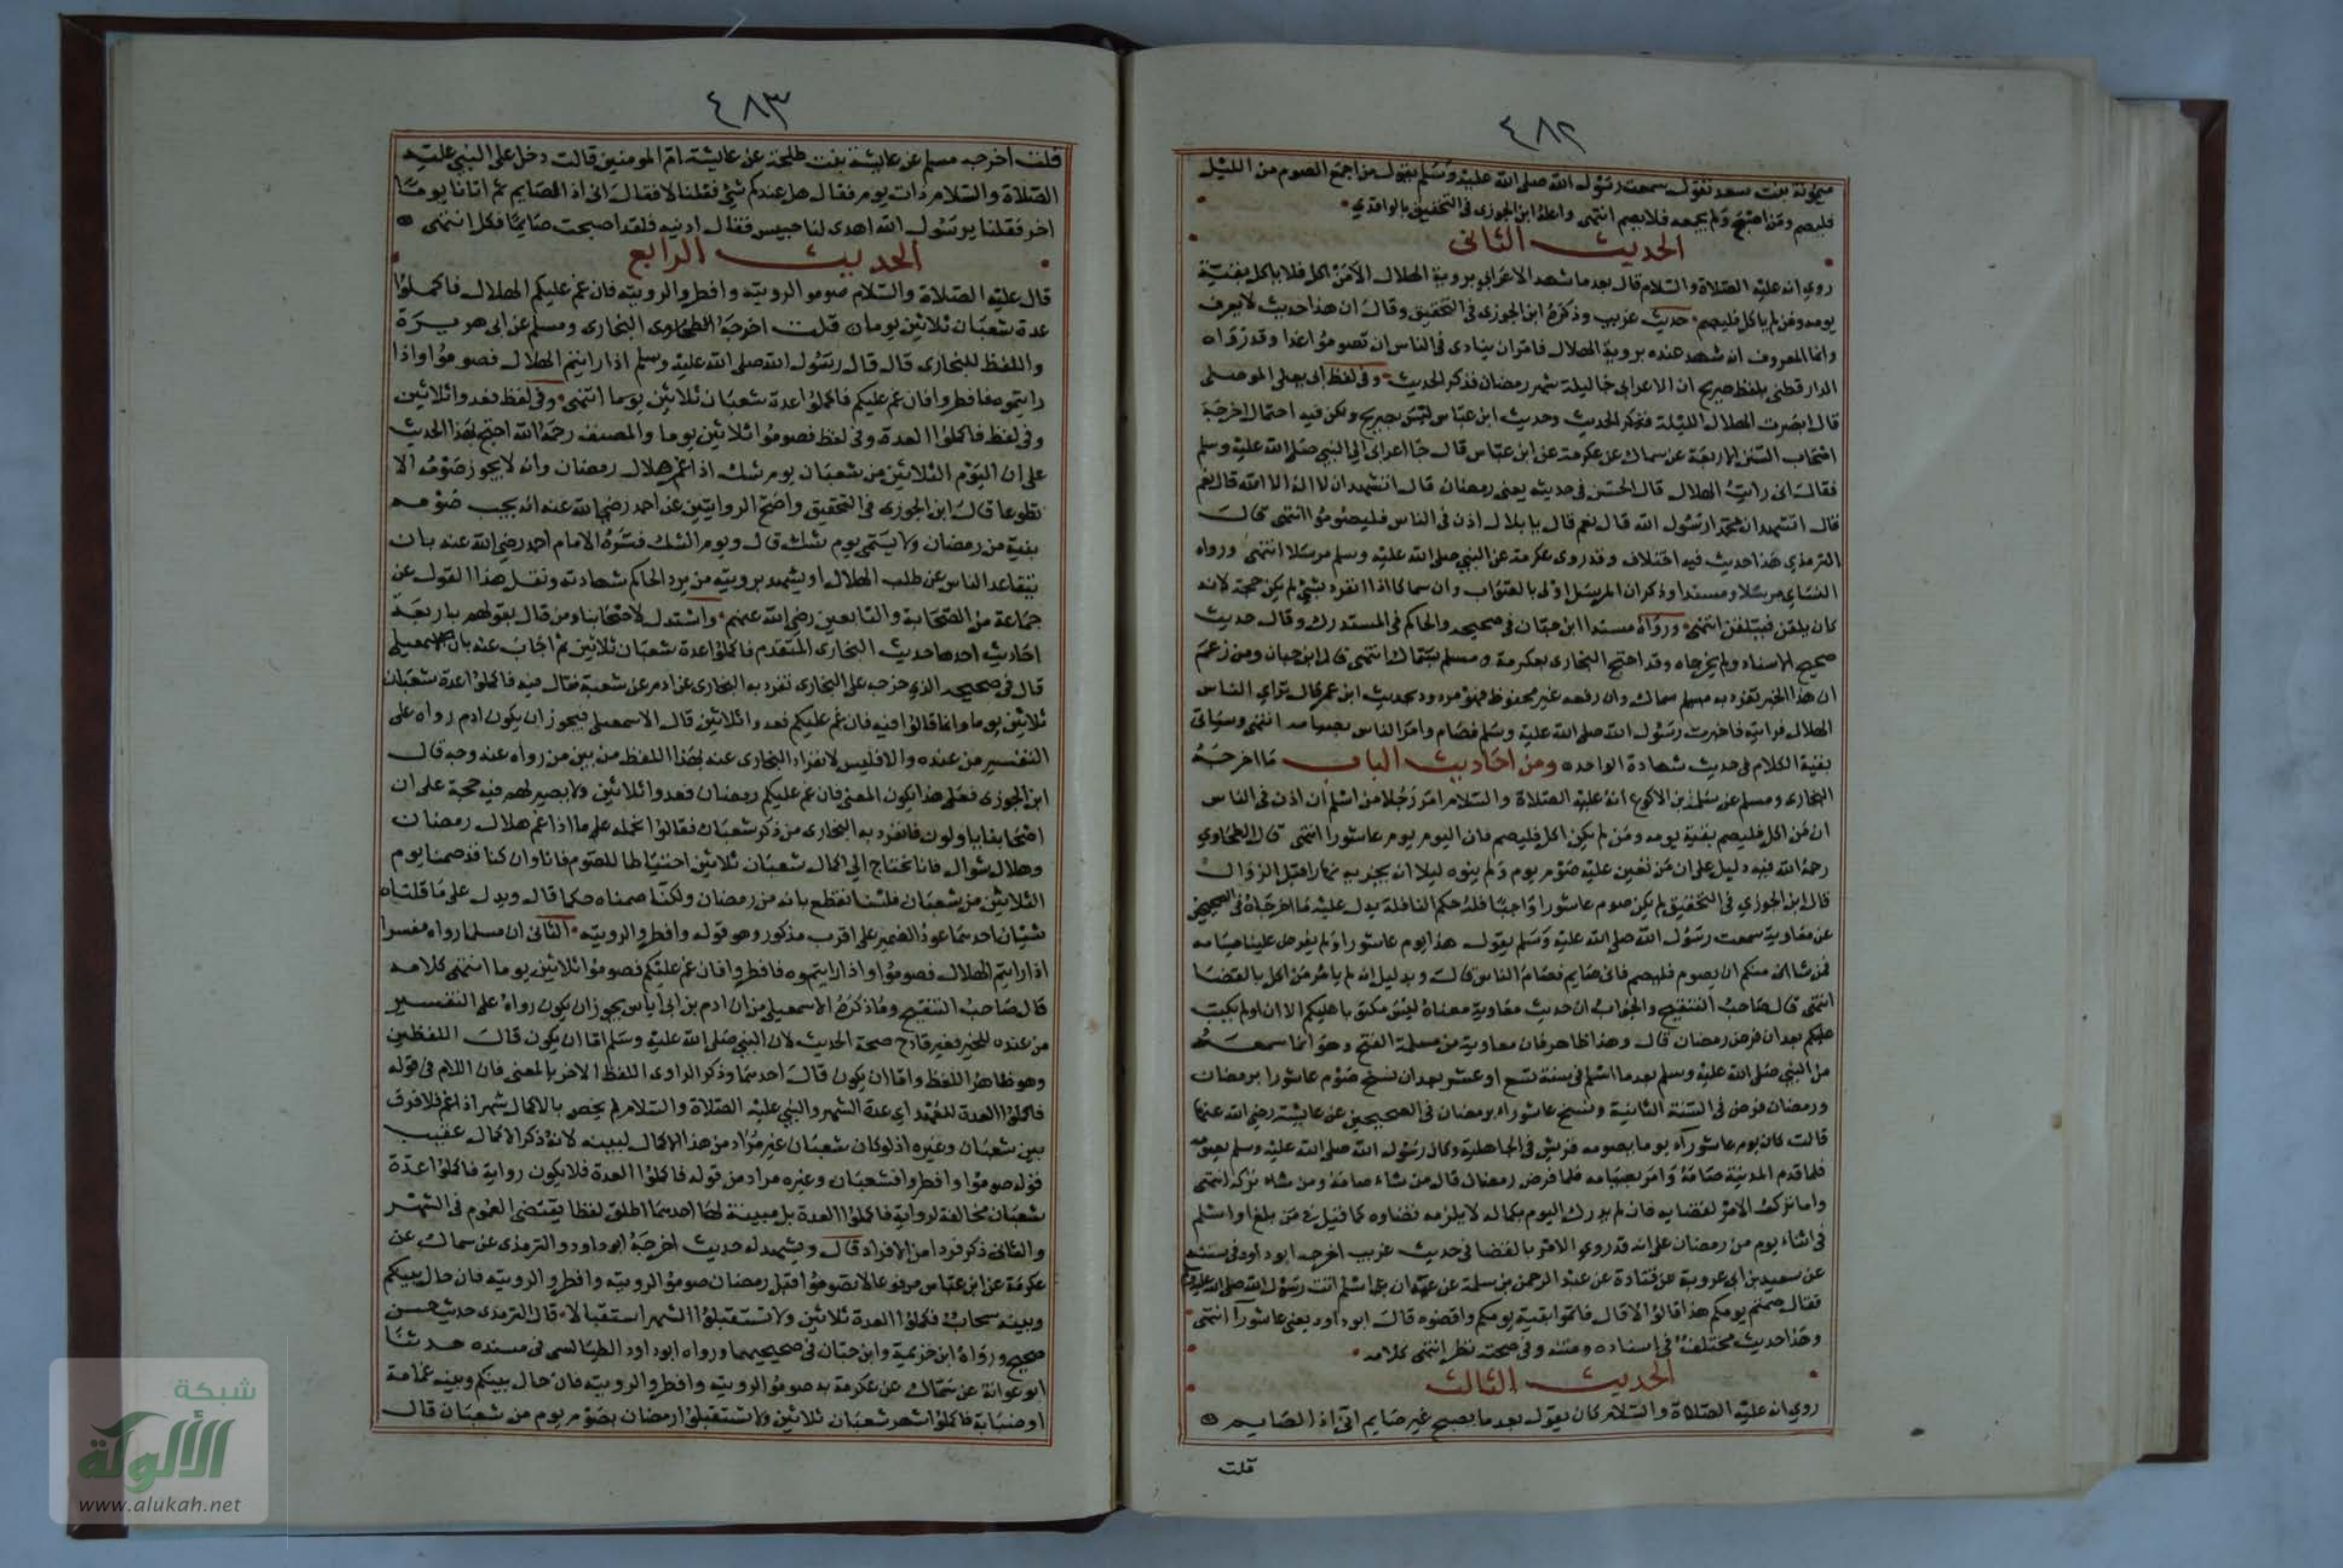 ٤٨٢
ميمونة بنت سعد تقول سمعت رسول الله صلى الله عليه وسلم يقول من اجمع الصوم من الليل
فليصم ومن اصبح ولم يجمعه فلا يصم انتهى واعله ابن الجوزى فى التحقيق بالواقدي
الحديث الثانى
روي انه عليه الصلاة والسلام قال بعد ما شهد الاعرابي بروية الهلال الا من اكل فلا ياكل بقية
يومه ومن لم ياكل فليصم حديث غريب وذكره ابن الجوزى فى التحقيق وقال ان هذا حديث لا يعرف
وانما المعروف انه شهد عنده بروية الهلال فامر ان ينادى فى الناس ان تصوموا غدا وقد رواه
الدارقطنى بلفظ صريح ان الاعرابى جا ليلة شهر رمضان فذكر الحديث وفى لفظ ابى يعلى الموصلى
قال ابصرت الهلال الليلة فذكر الحديث وحديث ابن عباس ليس بصريح ولكن فيه احتمال اخرجه
اصحاب السنن الاربعة عن سماك عن عكرمة عن ابن عباس قال جا اعرابى الي النبي صلى الله عليه وسلم
فقال انى رايت الهلال قال الحسن فى حديثه يعنى رمضان قال اتشهد ان لا اله الا الله قال نعم
قال اتشهد ان محمدا رسول الله قال نعم قال يا بلال اذن فى الناس فليصوموا انتهى قال
الترمذي هذا حديث فيه اختلاف وقد روى عكرمة عن النبي صلى الله عليه وسلم مرسلا انتهى ورواه
النساي مرسلا ومسندا وذكر ان المرسل اولى بالصواب وان سماكا اذا انفرد بشيء لم يكن حجة لانه
كان يلقن فيتلقن انتهى ورواه مسندا ابن حبان فى صحيحه والحاكم فى المستدرك وقال حديث
صحيح الاسناد ولم يخرجاه وقد احتج البخارى بعكرمة ومسلم بسماك انتهى قال ابن حبان ومن زعم
ان هذا الخبر تفرد به سماك وان رفعه غير محفوظ فهو مردود بحديث ابن عمر قال تراي الناس
الهلال فرايته فاخبرت رسول الله صلى الله عليه وسلم فصام وامر الناس بصيامه انتهى وسياتى
بقية الكلام فى حديث شهادة الواحد ومن احاديث الباب ما اخرجه
البخارى ومسلم عن سلمة بن الاكوع انه عليه الصلاة والسلام امر رجلا من اسلم ان اذن فى الناس
ان من اكل فليصم بقية يومه ومن لم يكن اكل فليصم فان اليوم يوم عاشورا انتهى قال الطحاوي
رحمه الله فيه دليل على ان من تعين عليه صوم يوم ولم ينوه ليلا انه يجزيه نهارا قبل الزوال
قال ابن الجوزي فى التحقيق لم يكن صوم عاشورا واجبا فله حكم النافلة يدل عليه ما اخرجاه فى الصحيحين
عن معاوية سمعت رسول الله صلى الله عليه وسلم يقول هذا يوم عاشورا ولم يفرض علينا صيامه
فمن شا منكم ان يصوم فليصم فانى صايم فصام الناس قال وبدليل انه لم يامر من اكل بالقضا
انتهى قال صاحب التنقيح والجواب ان حديث معاوية معناه ليس مكتوبا عليكم الان او لم يكتب
عليكم بعد ان فرض رمضان قال وهذا ظاهر فان معاوية من مسلمة الفتح وهو انما سمعه
من النبي صلى الله عليه وسلم بعد ما اسلم فى سنة تسع او عشر بعد ان نسخ صوم عاشورا برمضان
ورمضان فرض فى السنة الثانية ونسخ عاشوراء برمضان فى الصحيحين عن عايشة رضي الله عنها
قالت كان يوم عاشوراء يوما يصومه قريش فى الجاهلية وكان رسول الله صلى الله عليه وسلم يصومه
فلما قدم المدينة صامه وامر بصيامه فلما فرض رمضان قال من شاء صامه ومن شاء تركه انتهى
واما ترك الامر لقضايه فان لم يدرك اليوم بكماله لا يلزمه قضاوه كما قيل فى من بلغ او اسلم
فى اثناء يوم من رمضان على انه قد روي الامر بالقضا فى حديث غريب اخرجه ابو داود فى سننه
عن سعيد بن ابى عروبة عن قتادة عن عبد الرحمن بن سلمة عن عمه ان اسلم اتت رسول الله صلى الله عليه وسلم
فقال صمتم يومكم هذا قالوا لا قال فاتموا بقية يومكم واقضوه قال ابو داود يعنى عاشورآ انتهى
وهذا حديث مختلف فى اسناده ومتنه وفى صحته نظر انتهى كلامه
الحديث الثالث
روي انه عليه الصلاة والسلام كان يقول بعد ما يصبح غير صايم انى اذا لصايم
قلت
٤٨٣
قلت اخرجه مسلم عن عايشة بنت طلحة عن عايشة ام المومنين قالت دخل على النبي عليه
الصلاة والسلام ذات يوم فقال هل عندكم شئ فقلنا لا فقال انى اذا لصايم ثم اتانا يوما
اخر فقلنا يرسول الله اهدى لنا حيس فقال ادنيه فلقد اصبحت صايما فاكل انتهى
الحديث الرابع
قال عليه الصلاة والسلام صوموا لرويته وافطروا لرويته فان غم عليكم الهلال فاكملوا
عدة شعبان ثلاثين يوما قلت اخرجه البخارى ومسلم عن ابى هريرة
واللفظ للبخارى قال قال رسول الله صلى الله عليه وسلم اذا رايتم الهلال فصوموا واذا
رايتموه فافطروا فان غم عليكم فاكملوا عدة شعبان ثلاثين يوما انتهى وفى لفظ فعدوا ثلاثين
وفى لفظ فاكملوا العدة وفى لفظ فصوموا ثلاثين يوما والمصنف رحمه الله احتج بهذا الحديث
على ان اليوم الثلاثين من شعبان يوم شك اذا غم هلال رمضان وانه لا يجوز صومه الا
تطوعا قال ابن الجوزى فى التحقيق واصح الروايتين عن احمد رضي الله عنه انه يجب صومه
بنية من رمضان ولا يسمى يوم شك قال ويوم الشك فسره الامام احمد رضي الله عنه بان
يتقاعد الناس عن طلب الهلال او يشهد برويته من يرد الحاكم شهادته ونقل هذا القول عن
جماعة من الصحابة والتابعين رضي الله عنهم واستدل لاصحابنا ومن قال بقولهم باربعة
احاديث احدها حديث البخارى المتقدم فاكملوا عدة شعبان ثلاثين ثم اجاب عنه بان الاسمعيلى
قال فى صحيحه الذي خرجه على البخارى تفرد به البخارى عن ادم عن شعبة فقال فيه فاكملوا عدة شعبان
ثلاثين يوما وانما قالوا فيه فان غم عليكم فعدوا ثلاثين قال الاسمعيلى فيجوز ان يكون ادم رواه على
التفسير من عنده والا فليس لانفراد البخارى عنه بهذا اللفظ من بين من رواه عنه وجه قال
ابن الجوزى فعلى هذا يكون المعنى فان غم عليكم رمضان فعدوا ثلاثين ولا يصير لهم فيه حجة على ان
اصحابنا ياولون ما تفرد به البخارى من ذكر شعبان فقالوا نحمله على ما اذا غم هلال رمضان
وهلال شوال فانا نحتاج الى اكمال شعبان ثلاثين احتياطا للصوم فانا وان كنا قد صمنا يوم
الثلاثين من شعبان فلسنا نقطع بانه من رمضان ولكنا صمناه حكما قال ويدل على ما قلناه
شيئان احدهما عود الضمير على اقرب مذكور وهو قوله وافطروا لرويته الثانى ان مسلما رواه مفسرا
اذا رايتم الهلال فصوموا واذا رايتموه فافطروا فان غم عليكم فصوموا ثلاثين يوما انتهى كلامه
قال صاحب التنقيح وما ذكره الاسمعيلى من ان ادم بن ابى اياس يجوز ان يكون رواه على التفسير
من عنده للخبر فغير قادح صحة الحديث لان النبي صلى الله عليه وسلم اما ان يكون قال اللفظين
وهو ظاهر اللفظ واما ان يكون قال احدهما وذكر الراوى اللفظ الاخر بالمعنى فان اللام فى قوله
فاكملوا العدة للعهد اي عدة الشهر والنبي عليه الصلاة والسلام لم يخص بالاكمال شهرا اذا غم فلا فرق
بين شعبان وغيره اذ لو كان شعبان غير مراد من هذا الاكمال لبينه لانه ذكر الاكمال عقيب
قوله صوموا وافطروا فشعبان وغيره مراد من قوله فاكملوا العدة فلا يكون رواية فاكملوا عدة
شعبان مخالفة لرواية فاكملوا العدة بل مبينة لها احدهما اطلق لفظا يقتضى العموم فى الشهر
والثانى ذكر فردا من الافراد قال ويشهد له حديث اخرجه ابو داود والترمذى عن سماك عن
عكرمة عن ابن عباس مرفوعا لا تصوموا قبل رمضان صوموا لرويته وافطروا لرويته فان حال بينكم
وبينه سحاب فكملوا العدة ثلاثين ولا تستقبلوا الشهر استقبالا قال الترمذى حديث حسن
صحيح ورواه ابن خزيمة وابن حبان فى صحيحيهما ورواه ابو داود الطيالسى فى مسنده حدثنا
ابو عوانة عن سماك عن عكرمة به صوموا لرويته وافطروا لرويته فان حال بينكم وبينه غمامة
او ضبابة فاكملوا شهر شعبان ثلاثين ولا تستقبلوا رمضان بصوم يوم من شعبان قال
شبكة
الألوكة
www.alukah.net